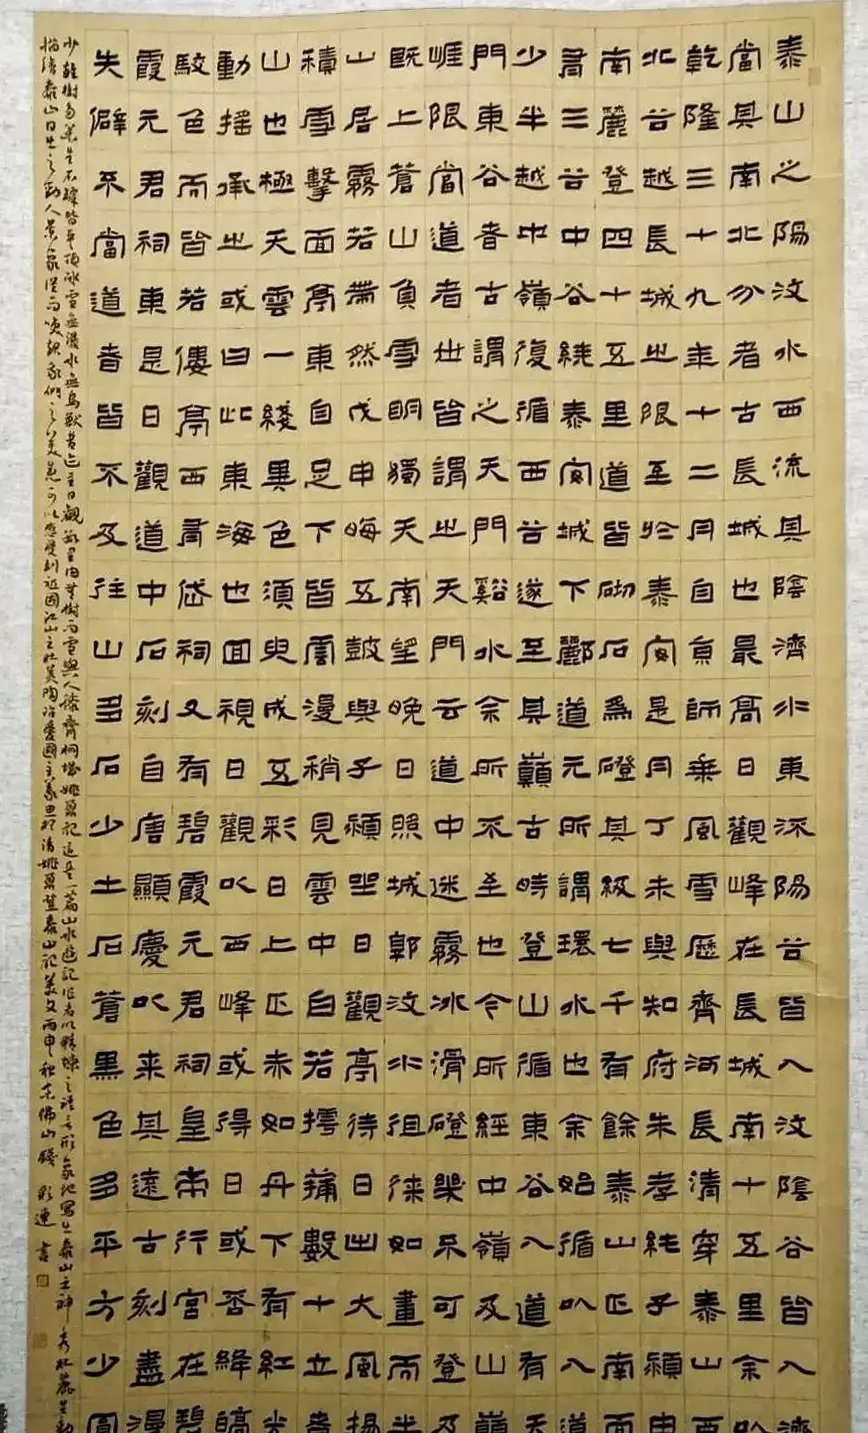 泰山之陽汶水西流其陰濟水東流陽谷皆入汶陰谷皆入濟
當其南北分者古長城也最高日觀峰在長城南十五里余以
乾隆三十九年十二月自京師乘風雪歷齊河長清穿泰山西
北谷越長城之限至於泰安是月丁未與知府朱孝純子潁由
南麗登四十五里道皆砌石為磴其級七千有餘泰山正南而
有三谷中谷繞泰安城下酈道元所謂環水也余始循以入道
少半越中嶺復循西谷遂至其巔古時登山循東谷入道有天
門東谷者古謂之天門谿水余所不至也今所經中嶺及山巔
崖限當道者世皆謂之天門云道中迷霧冰滑磴幾不可登及
既上蒼山負雪明獨天南望晚日照城郭汶水徂徠如畫而半
山居霧若帶然戊申晦五鼓與子潁坐日觀亭待日出大風揚
積雪擊面亭東自足下皆雲漫稍見雲中白若摴蒱數十立者
山也極天雲一綫異色須臾成五彩日上正赤如丹下有紅光
動搖承之或曰此東海也回視日觀以西峰或得日或否絳皜
駁色而皆若僂亭西有岱祠又有碧霞元君祠皇帝行宮在碧
霞元君祠東是日觀道中石刻自唐顯慶以來其遠古刻盡漫
失僻不當道者皆不及往山多石少土石蒼黑色多平方少圜
少雜樹多松生石罅皆平頂冰雪無瀑水無鳥獸音迹至日觀數里內無樹而雪與人膝齊桐城姚鼐記這是一篇山水遊記作者以精煉之語言形象地寫出泰山之神秀壯麗生動
描繪泰山日出之動人景象從而使我們之美可以感受到祖國江山之壯美陶冶愛國主義思想清姚鼐登泰山記美文丙申秋佛山彩連書